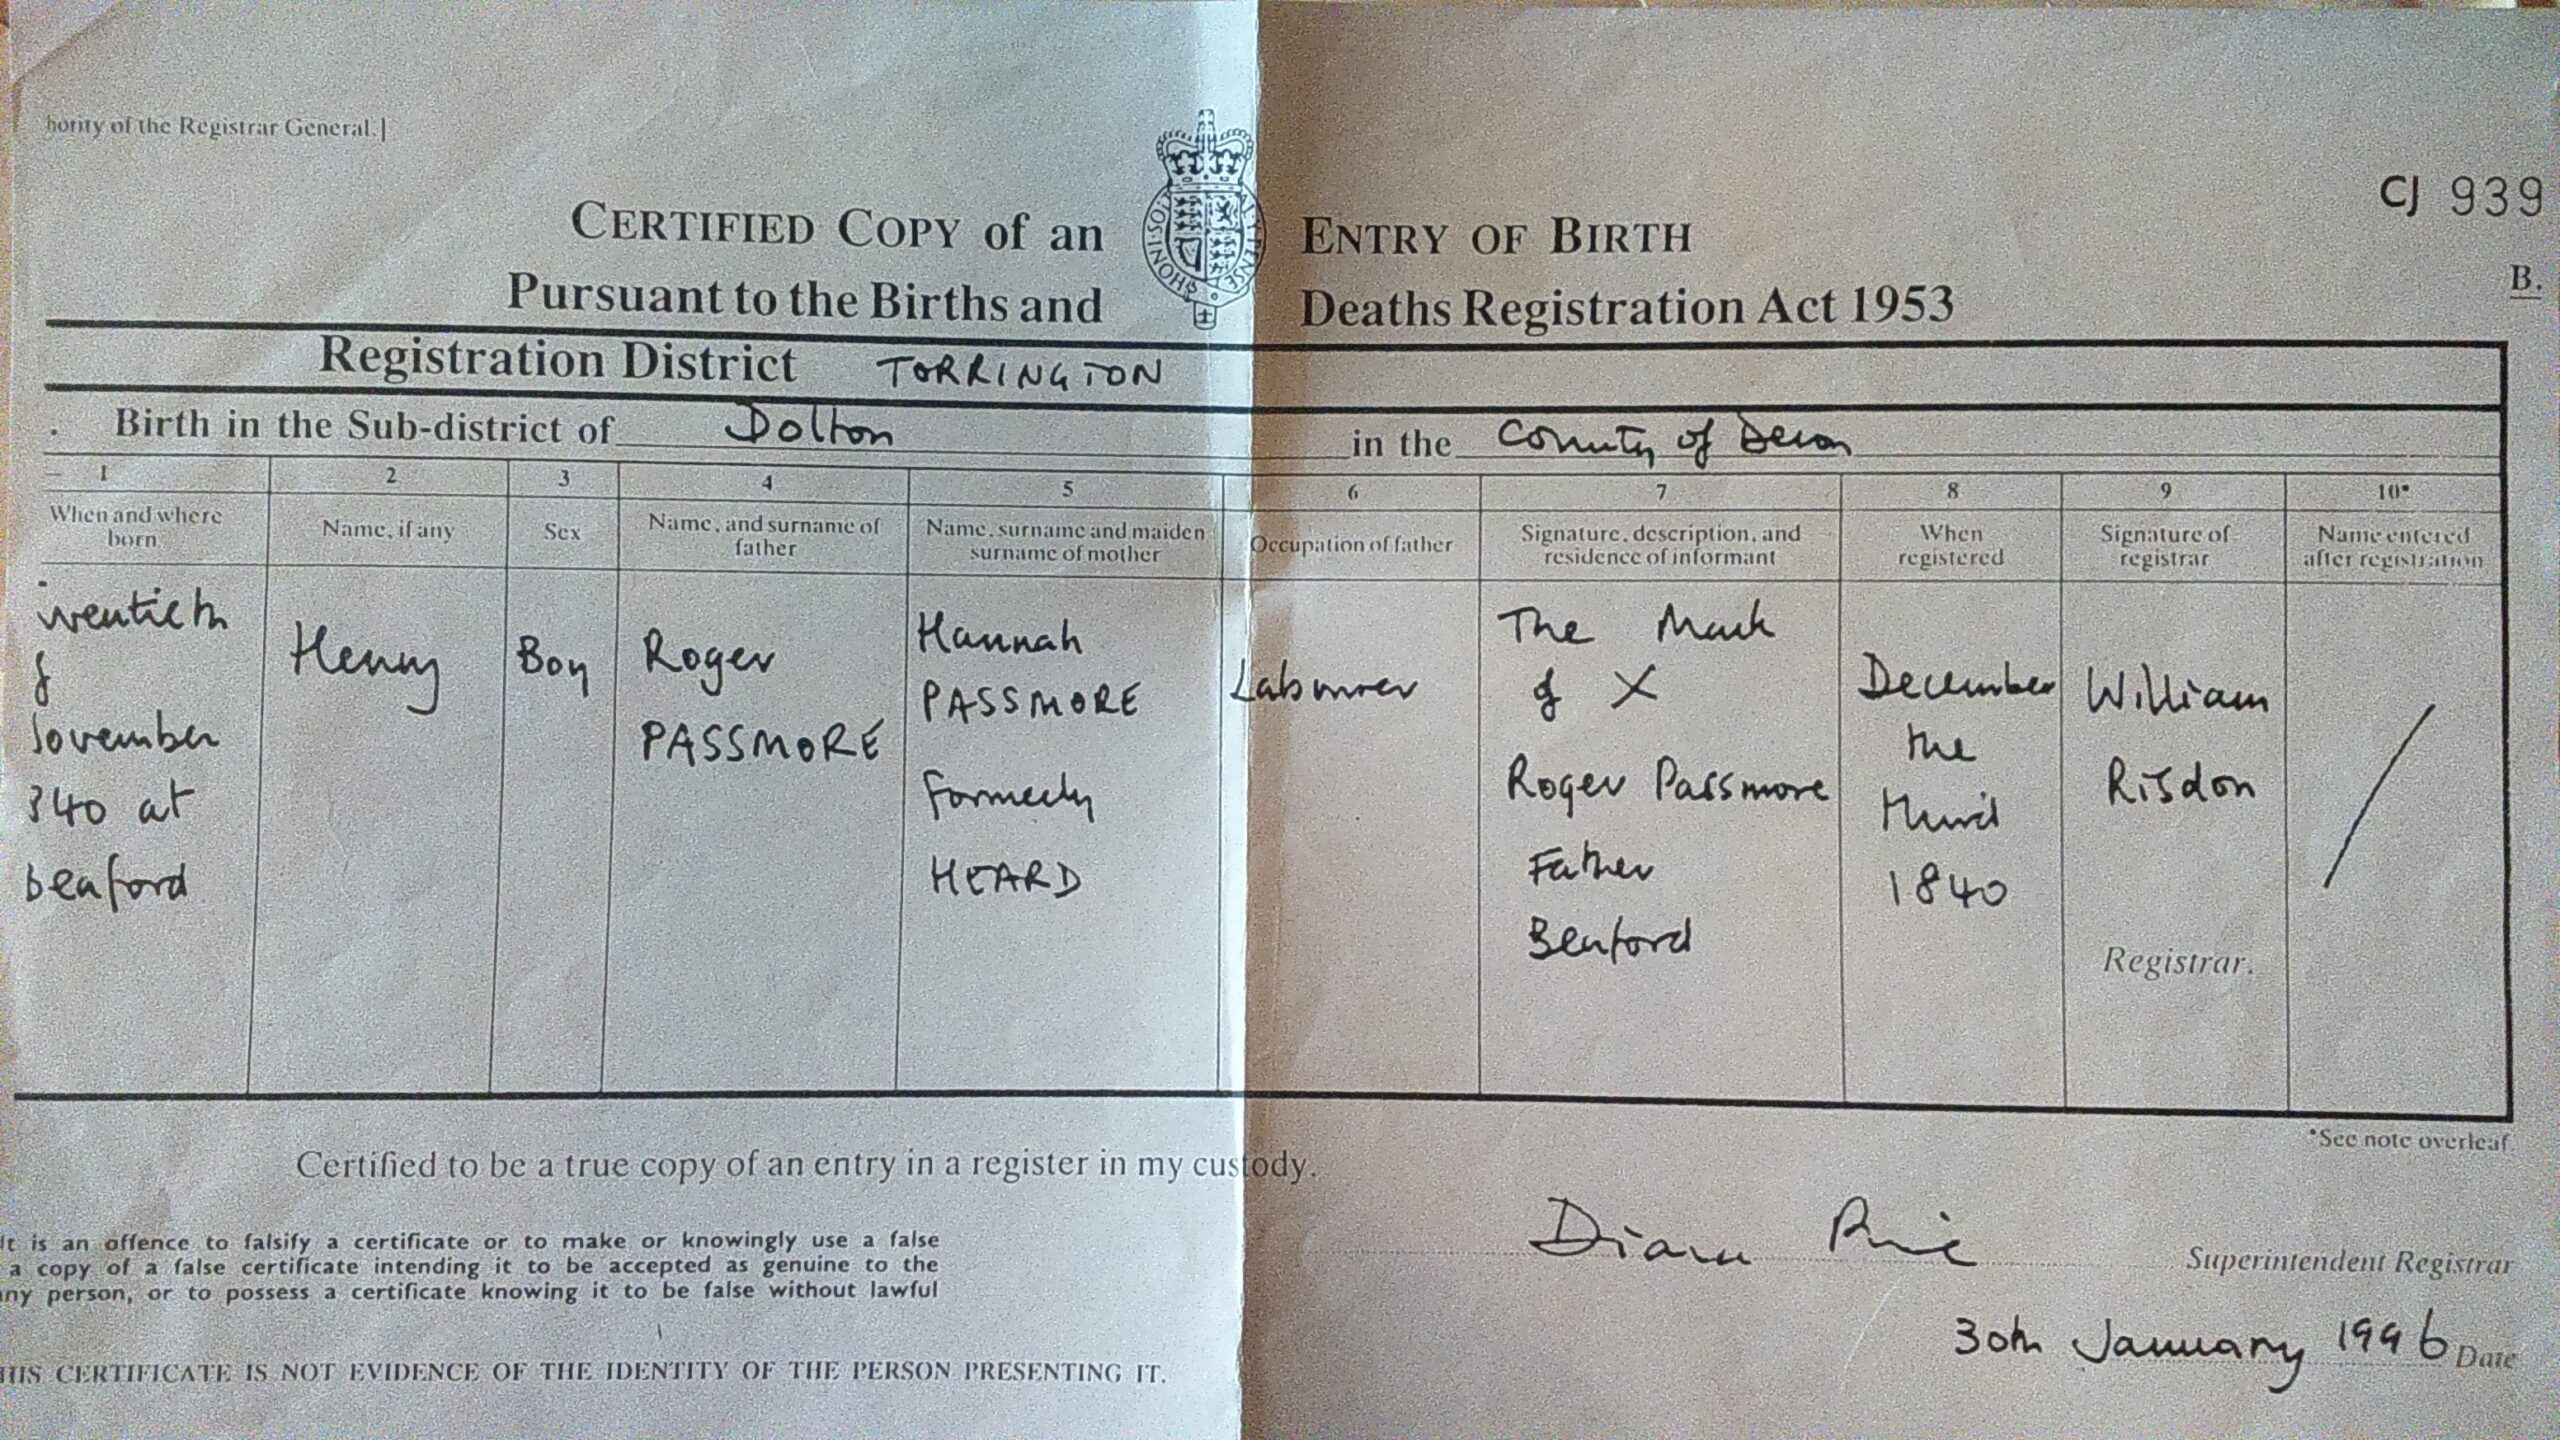 hority of the Registrar General.]
CJ 939
CERTIFIED COPY of an ENTRY OF BIRTH
HONI·SOIT
Pursuant to the Births and Deaths Registration Act 1953
B.
Registration District TORRINGTON
Birth in the Sub-district of Dolton in the County of Devon
1 2 3 4 5 6 7 8 9 10*
When and where born
Name, if any
Sex
Name, and surname of father
Name, surname and maiden surname of mother
Occupation of father
Signature, description, and residence of informant
When registered
Signature of registrar
Name entered after registration
wentieth
of
ovember
840 at
Beaford
Henry
Boy
Roger
PASSMORE
Hannah
PASSMORE
formerly
HEARD
Labourer
The Mark
of X
Roger Passmore
Father
Beaford
December
the
third
1840
William
Risdon
Registrar.
*See note overleaf.
Certified to be a true copy of an entry in a register in my custody.
Diana
Superintendent Registrar
30th January 1996 Date
It is an offence to falsify a certificate or to make or knowingly use a false
a copy of a false certificate intending it to be accepted as genuine to the
ny person, or to possess a certificate knowing it to be false without lawful
HIS CERTIFICATE IS NOT EVIDENCE OF THE IDENTITY OF THE PERSON PRESENTING IT.